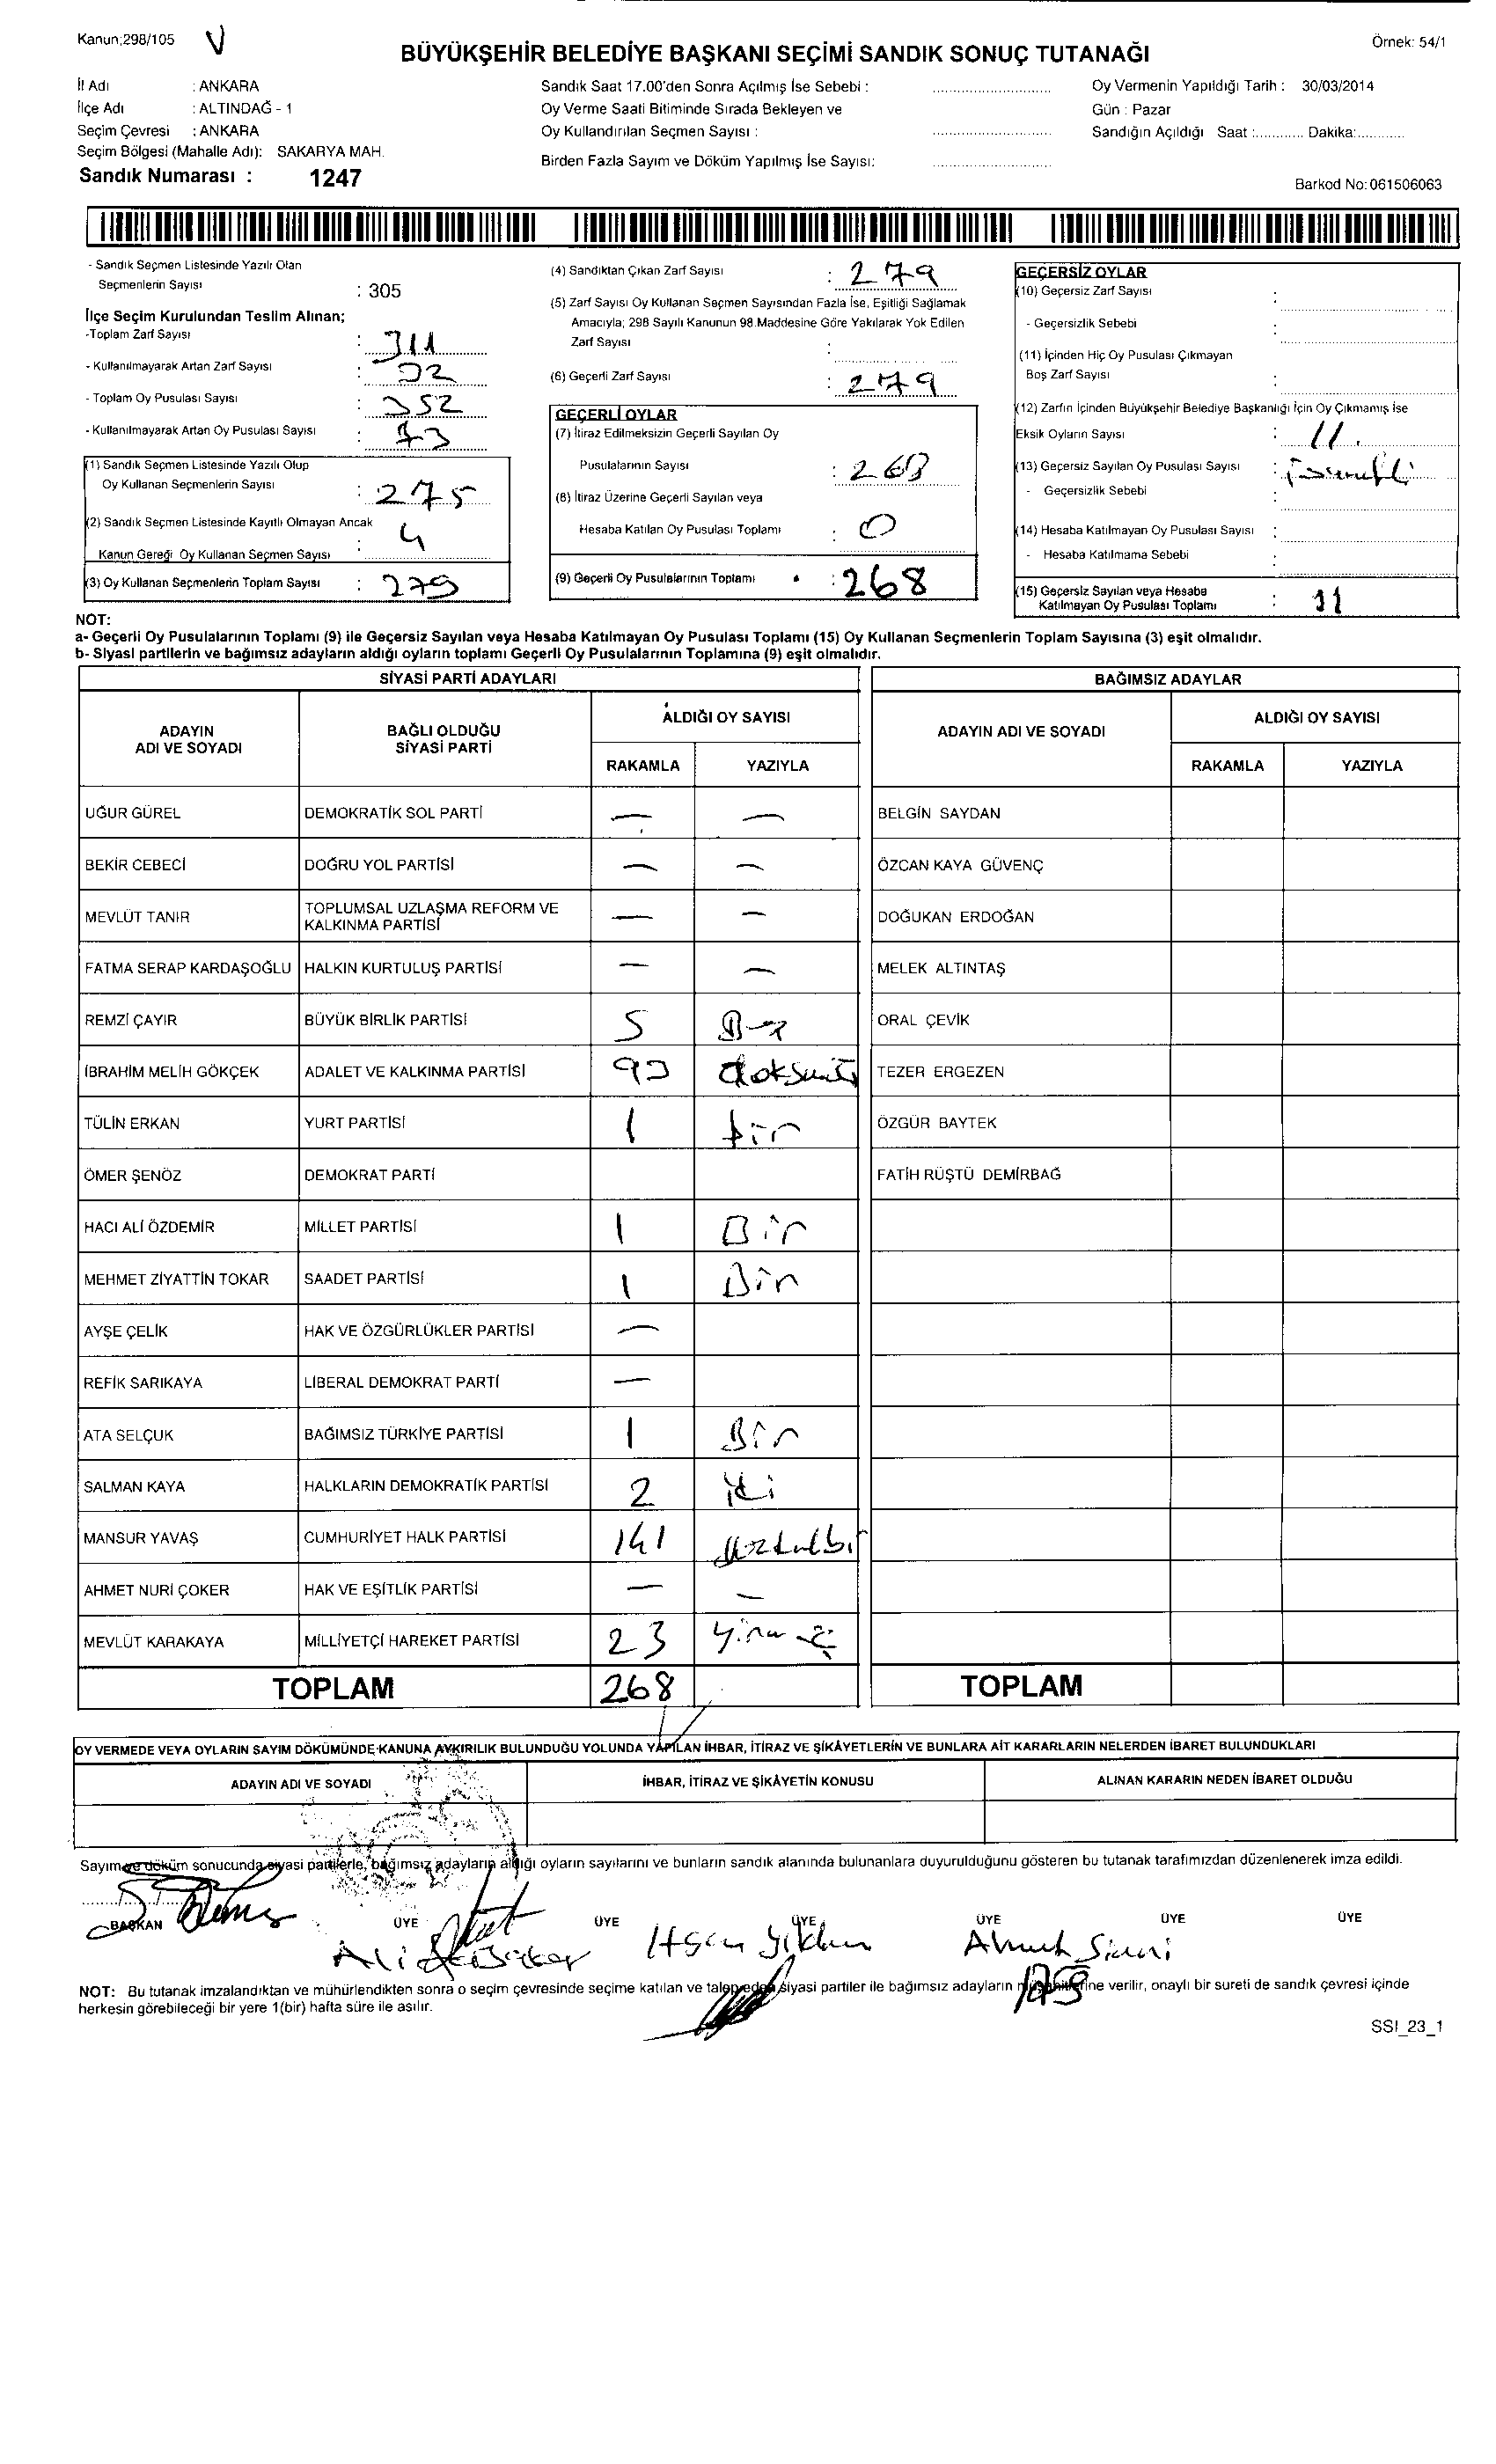 Kanun;298/105 V
Örnek: 54/1
BÜYÜKŞEHİR BELEDİYE BAŞKANI SEÇİMİ SANDIK SONUÇ TUTANAĞI
İl Adı : ANKARA
İlçe Adı : ALTINDAĞ - 1
Seçim Çevresi : ANKARA
Seçim Bölgesi (Mahalle Adı): SAKARYA MAH.
Sandık Numarası : 1247
Sandık Saat 17.00'den Sonra Açılmış İse Sebebi :
Oy Verme Saati Bitiminde Sırada Bekleyen ve
Oy Kullandırılan Seçmen Sayısı :
Birden Fazla Sayım ve Döküm Yapılmış İse Sayısı:
Oy Vermenin Yapıldığı Tarih : 30/03/2014
Gün : Pazar
Sandığın Açıldığı Saat :............ Dakika:............
Barkod No:061506063
- Sandık Seçmen Listesinde Yazılı Olan
Seçmenlerin Sayısı : 305
İlçe Seçim Kurulundan Teslim Alınan;
-Toplam Zarf Sayısı : 311
- Kullanılmayarak Artan Zarf Sayısı : 32
- Toplam Oy Pusulası Sayısı : 352
- Kullanılmayarak Artan Oy Pusulası Sayısı : 73
(1) Sandık Seçmen Listesinde Yazılı Olup
Oy Kullanan Seçmenlerin Sayısı : 275
(2) Sandık Seçmen Listesinde Kayıtlı Olmayan Ancak
Kanun Gereği Oy Kullanan Seçmen Sayısı : 4
(3) Oy Kullanan Seçmenlerin Toplam Sayısı : 279
(4) Sandıktan Çıkan Zarf Sayısı : 279
(5) Zarf Sayısı Oy Kullanan Seçmen Sayısından Fazla İse, Eşitliği Sağlamak
Amacıyla; 298 Sayılı Kanunun 98.Maddesine Göre Yakılarak Yok Edilen
Zarf Sayısı :
(6) Geçerli Zarf Sayısı : 279
GEÇERLİ OYLAR
(7) İtiraz Edilmeksizin Geçerli Sayılan Oy
Pusulalarının Sayısı : 268
(8) İtiraz Üzerine Geçerli Sayılan veya
Hesaba Katılan Oy Pusulası Toplamı : 0
(9) Geçerli Oy Pusulalarının Toplamı : 268
GEÇERSİZ OYLAR
(10) Geçersiz Zarf Sayısı :
- Geçersizlik Sebebi :
(11) İçinden Hiç Oy Pusulası Çıkmayan
Boş Zarf Sayısı :
(12) Zarfın İçinden Büyükşehir Belediye Başkanlığı İçin Oy Çıkmamış İse
Eksik Oyların Sayısı : 11.
(13) Geçersiz Sayılan Oy Pusulası Sayısı :
- Geçersizlik Sebebi
(14) Hesaba Katılmayan Oy Pusulası Sayısı :
- Hesaba Katılmama Sebebi :
(15) Geçersiz Sayılan veya Hesaba
Katılmayan Oy Pusulası Toplamı : 11
NOT:
a- Geçerli Oy Pusulalarının Toplamı (9) ile Geçersiz Sayılan veya Hesaba Katılmayan Oy Pusulası Toplamı (15) Oy Kullanan Seçmenlerin Toplam Sayısına (3) eşit olmalıdır.
b- Siyasi partilerin ve bağımsız adayların aldığı oyların toplamı Geçerli Oy Pusulalarının Toplamına (9) eşit olmalıdır.
SİYASİ PARTİ ADAYLARI
ADAYIN ADI VE SOYADI
BAĞLI OLDUĞU SİYASİ PARTİ
ALDIĞI OY SAYISI
RAKAMLA YAZIYLA
UĞUR GÜREL DEMOKRATİK SOL PARTİ — —
BEKİR CEBECİ DOĞRU YOL PARTİSİ — —
MEVLÜT TANIR TOPLUMSAL UZLAŞMA REFORM VE KALKINMA PARTİSİ — —
FATMA SERAP KARDAŞOĞLU HALKIN KURTULUŞ PARTİSİ — —
REMZİ ÇAYIR BÜYÜK BİRLİK PARTİSİ 5
İBRAHİM MELİH GÖKÇEK ADALET VE KALKINMA PARTİSİ 93
TÜLİN ERKAN YURT PARTİSİ 1 bir
ÖMER ŞENÖZ DEMOKRAT PARTİ
HACI ALİ ÖZDEMİR MİLLET PARTİSİ 1 Bir
MEHMET ZİYATTİN TOKAR SAADET PARTİSİ 1 Bir
AYŞE ÇELİK HAK VE ÖZGÜRLÜKLER PARTİSİ —
REFİK SARIKAYA LİBERAL DEMOKRAT PARTİ —
ATA SELÇUK BAĞIMSIZ TÜRKİYE PARTİSİ 1 Bir
SALMAN KAYA HALKLARIN DEMOKRATİK PARTİSİ 2 iki
MANSUR YAVAŞ CUMHURİYET HALK PARTİSİ 141
AHMET NURİ ÇOKER HAK VE EŞİTLİK PARTİSİ — —
MEVLÜT KARAKAYA MİLLİYETÇİ HAREKET PARTİSİ 23
TOPLAM 268
BAĞIMSIZ ADAYLAR
ADAYIN ADI VE SOYADI
ALDIĞI OY SAYISI
RAKAMLA YAZIYLA
BELGİN SAYDAN
ÖZCAN KAYA GÜVENÇ
DOĞUKAN ERDOĞAN
MELEK ALTINTAŞ
ORAL ÇEVİK
TEZER ERGEZEN
ÖZGÜR BAYTEK
FATİH RÜŞTÜ DEMİRBAĞ
TOPLAM
OY VERMEDE VEYA OYLARIN SAYIM DÖKÜMÜNDE KANUNA AYKIRILIK BULUNDUĞU YOLUNDA YAPILAN İHBAR, İTİRAZ VE ŞİKÂYETLERİN VE BUNLARA AİT KARARLARIN NELERDEN İBARET BULUNDUKLARI
ADAYIN ADI VE SOYADI İHBAR, İTİRAZ VE ŞİKÂYETİN KONUSU ALINAN KARARIN NEDEN İBARET OLDUĞU
Sayım ve döküm sonucunda siyasi partilerle, bağımsız adayların aldığı oyların sayılarını ve bunların sandık alanında bulunanlara duyurulduğunu gösteren bu tutanak tarafımızdan düzenlenerek imza edildi.
BAŞKAN ÜYE ÜYE ÜYE ÜYE ÜYE ÜYE
Ali
NOT: Bu tutanak imzalandıktan ve mühürlendikten sonra o seçim çevresinde seçime katılan ve talep eden siyasi partiler ile bağımsız adayların müşahitlerine verilir, onaylı bir sureti de sandık çevresi içinde
herkesin görebileceği bir yere 1(bir) hafta süre ile asılır.
SSI_23_1